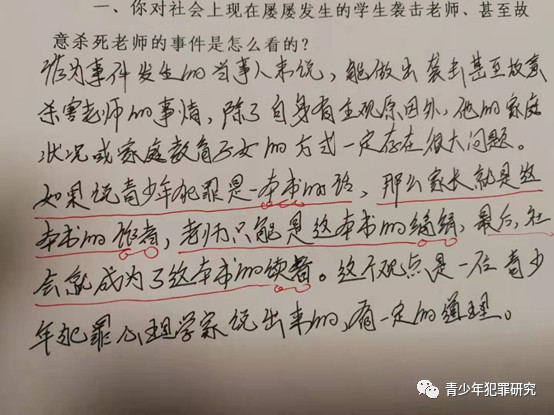 一、你对社会上现在屡屡发生的学生袭击老师、甚至故
意杀死老师的事件是怎么看的？
作为事件发生的当事人来说，能做出袭击甚至故意
杀害老师的事情，除了自身有主观原因外，他的家庭
状况或家庭教育子女的方式一定存在很大问题。
如果说青少年犯罪是一本书的话，那么家长就是这
本书的作者，老师只能是这本书的编辑，最后，社
会就成为了这本书的读者。这个观点是一位青少
年犯罪心理学家说出来的，有一定的道理。
青少年犯罪研究